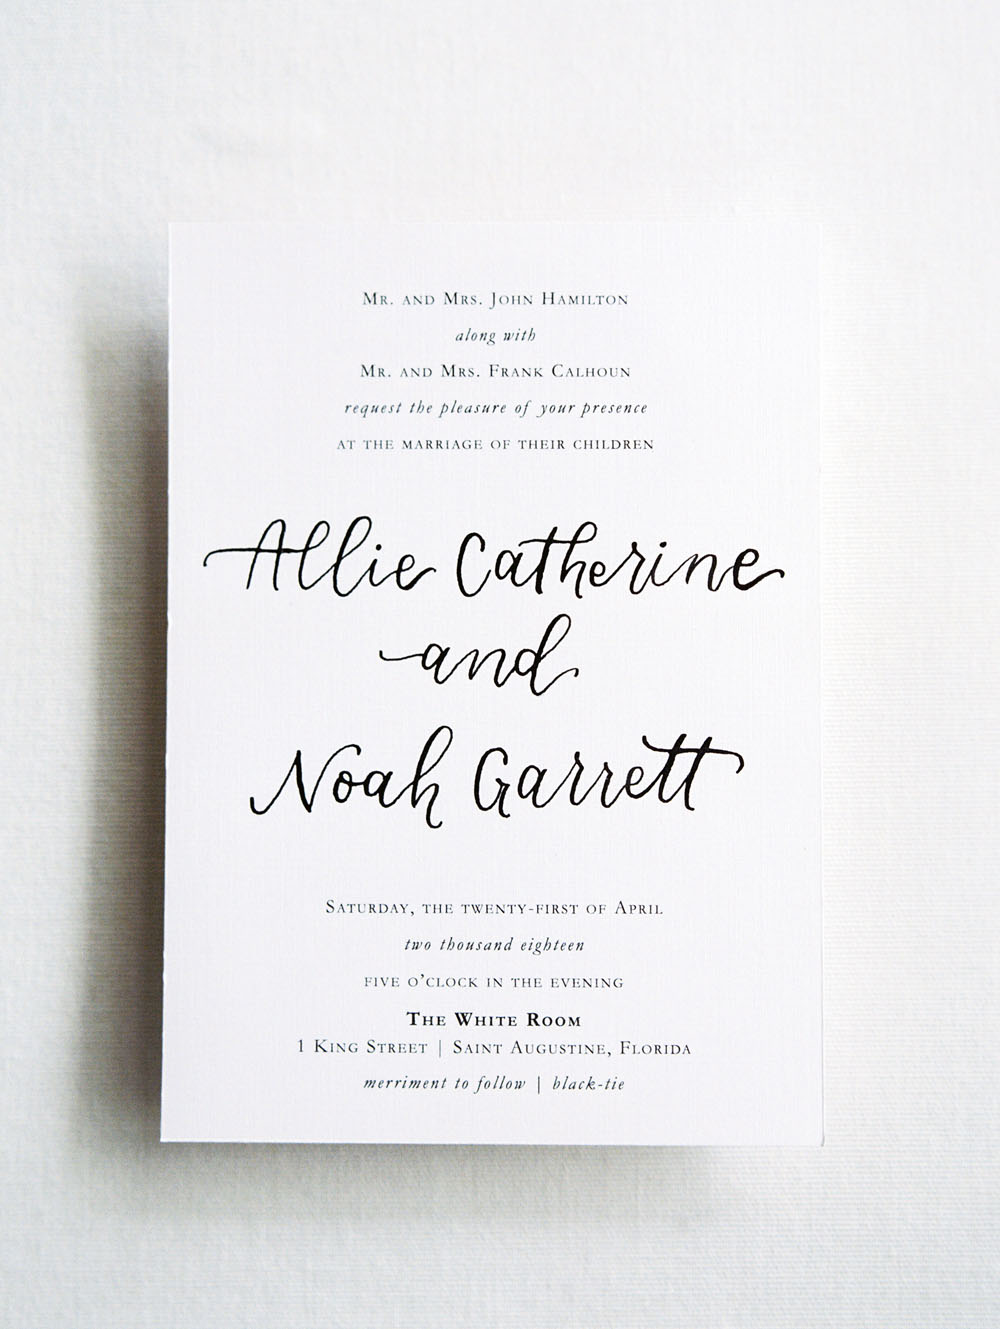 Mr. and Mrs. John Hamilton
along with
Mr. and Mrs. Frank Calhoun
request the pleasure of your presence
at the marriage of their children
Allie Catherine
and
Noah Garrett
Saturday, the twenty-first of April
two thousand eighteen
five o'clock in the evening
The White Room
1 King Street | Saint Augustine, Florida
merriment to follow | black-tie